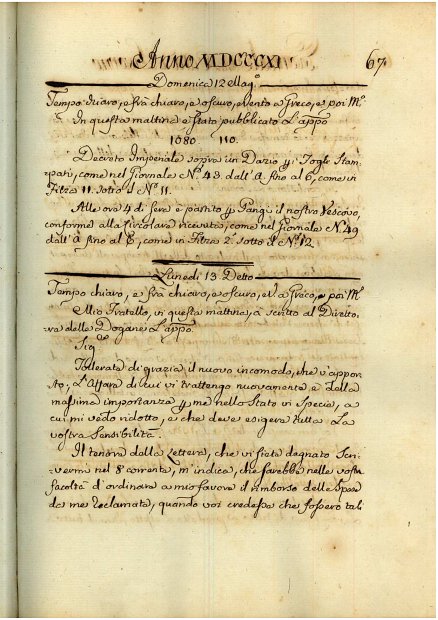 Anno MDCCCXI 67
Domenica 12 Mag.o
Tempo chiaro, e frà chiaro, e oscuro, e vento a Greco, e poi M.o
In questa mattina è stato pubblicato L'appo
1080 110
Decreto Imperiale sopra un Dazio p. Fogli Stam-
pati, come nel Giornale N.o 43 dall'A fino al 6, come in
Filza 11. sotto il N.o 11.
Alle ore 4 di sera è partito p. Parigi il nostro Vescovo,
conforme alla Circolare ricevuta, come nel Giornale N.o 49
dall'A fino al E, come in Filza 2.a sotto il N.o 12
Lunedì 13 Detto
Tempo chiaro, e frà chiaro, e oscuro, e V. a Greco, e poi M.o
Mio Fratello, in questa mattina, à scritto al Diretto-
re delle Dogane L'appo.
Sig.e
Tollerate di grazia il nuovo incomodo, che v'appor-
to; L'Affare di cui vi trattengo nuovamente è della
massima importanza p. me nello Stato in specie, a
cui mi vedo ridotto, e che deve esigere tutta La
vostra Sensibilità.
Il tenore della Lettera, che vi siete degnato Scri-
vermi nel 8 corrente, m'indica, che sarebbe nelle vostre
facoltà d'ordinare a mio favore il rimborso delle Spese
da me reclamate, quando voi credeste che fossero tali